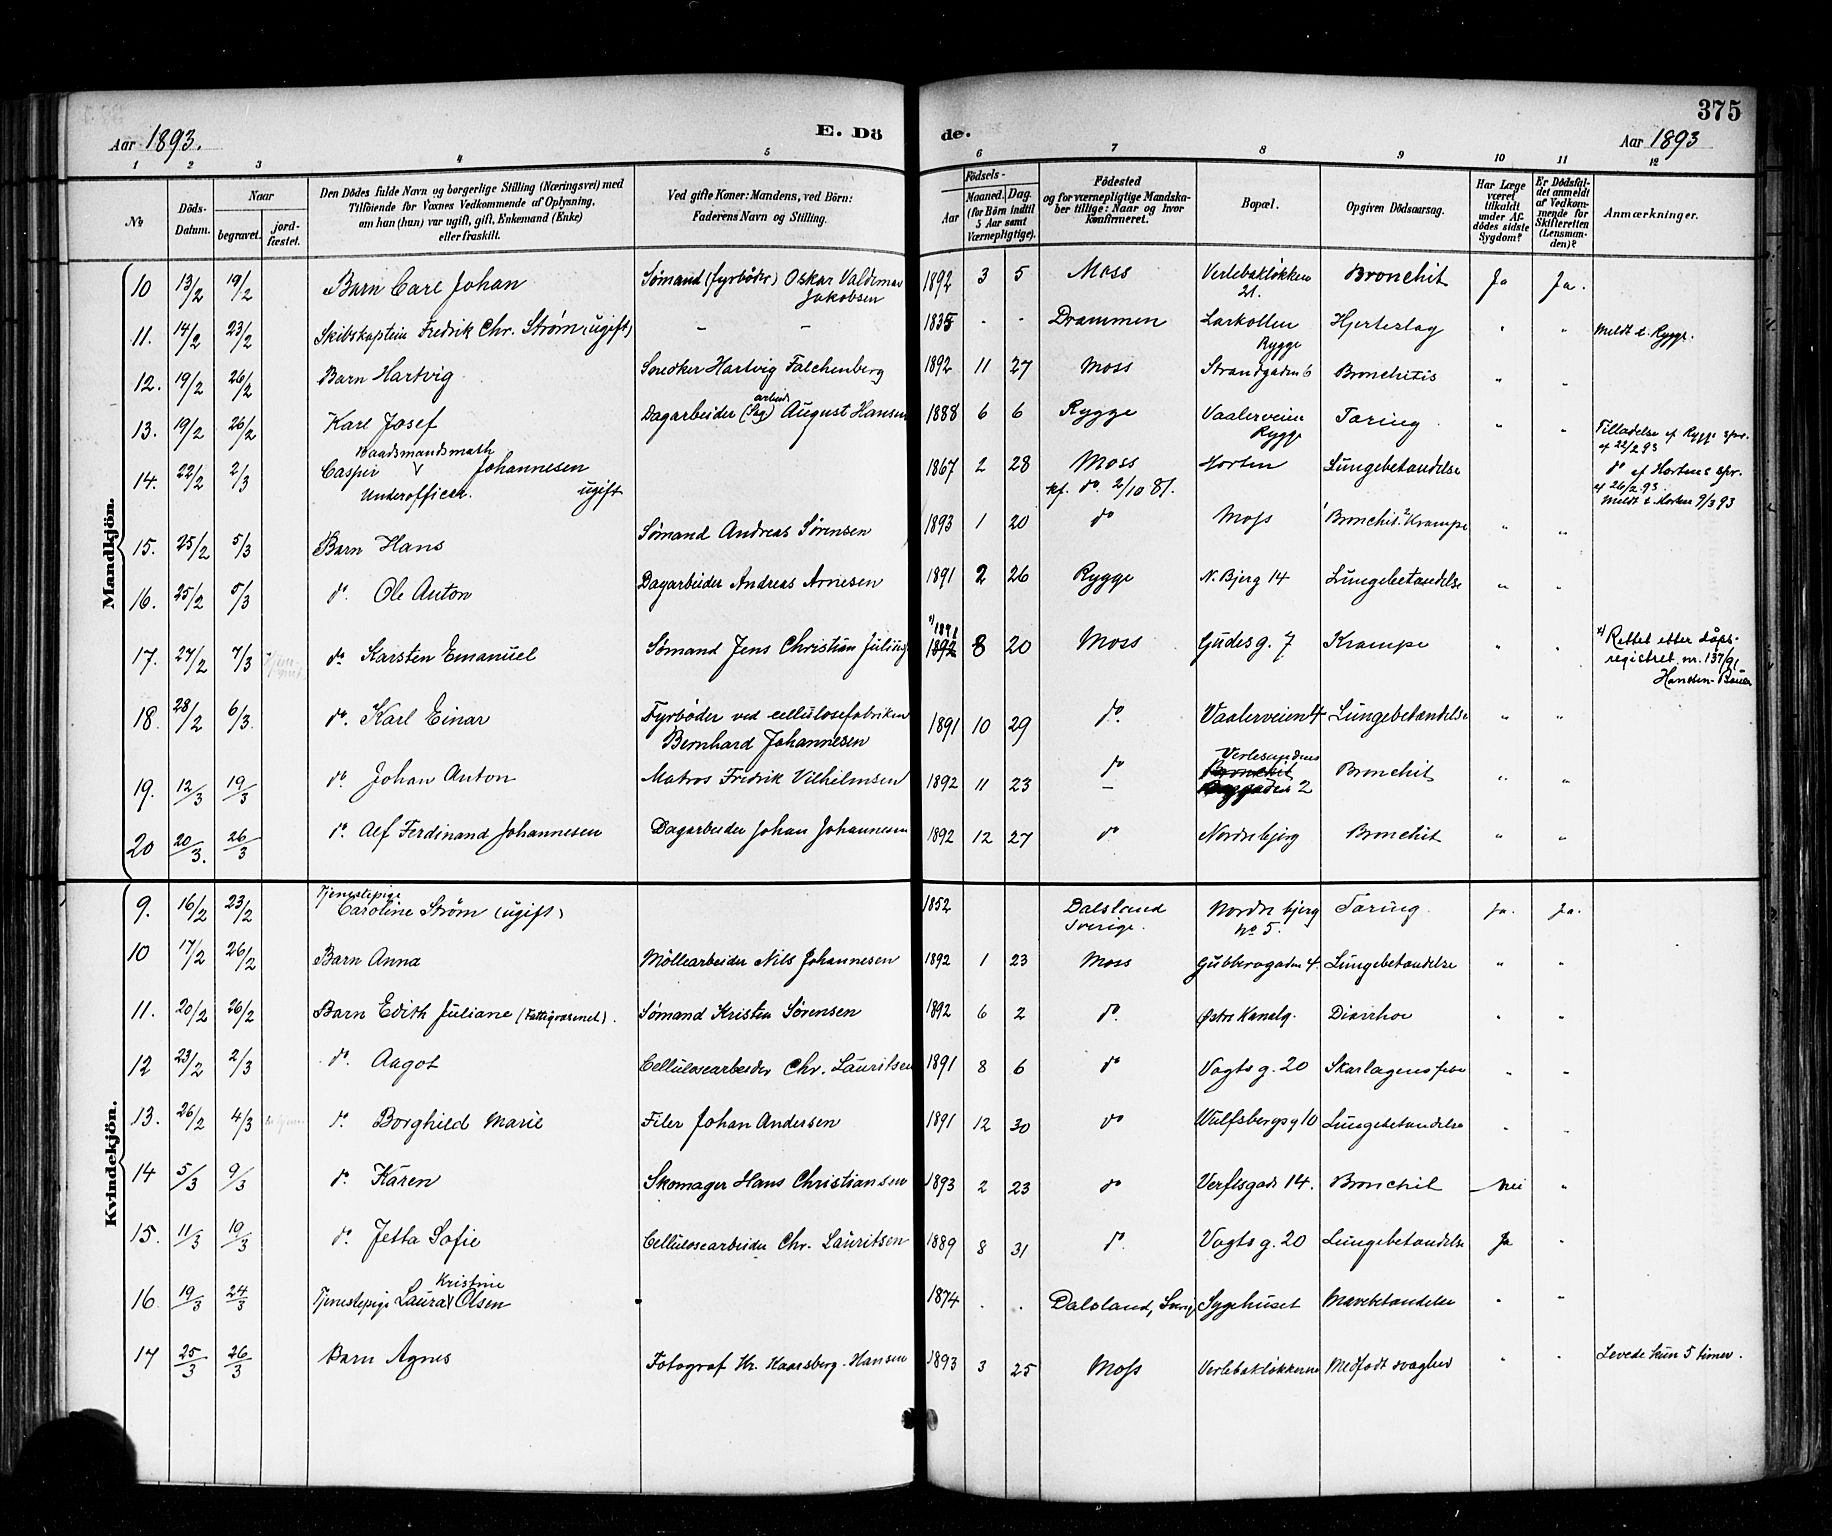 375
Aar 1893. E. Dö de. Aar 1893
1 2 3 4 5 6 7 8 9 10 11 12
№ Döds-Datum. Naar begravet. jord-fæstet. Den Dödes fulde Navn og borgerlige Stilling (Næringsvei) med Tilföiende for Voxnes Vedkommende af Oplysning, om han (hun) var ugift, gift, Enkemand (Enke) eller fraskilt. Ved gifte Koner: Mandens, ved Börn: Faderens Navn og Stilling. Födsels- Aar Maaned. Dag. (for Börn indtil 5 Aar samt Værnepligtige). Födested og for værnepligtige Mandskaber tillige: Naar og hvor Konfirmeret. Bopæl. Opgiven Dödsaarsag. Har Læge været tilkaldt under Afdödes sidste Sygdom? Er Dödsfaldet anmeldt af Vedkommende for Skifteretten (Lensmanden)? Anmærkninger.
Mandkjön.
10 13/2 19/2 Barn Carl Johan Sømand (fyrbøder) Oskar Valdemar Jakobsen 1892 3 5 Moss Verlebakløkken 21. Bronchit Ja Ja.
11. 14/2 23/2 Skibskaptein Fredrik Chr. Strøm (ugift) - - 1835 - - Drammen Larkollen Rygge Hjerteslag " " Meldt t. Rygge.
12. 19/2 26/2 Barn Hartvig Snedker Hartvig Falchenberg 1892 11 27 Moss Strandgaden 6 Bronchitis " "
13. 19/2 26/2 Karl Josef Dagarbeider (Sag arbeid) August Hansen 1888 6 6 Rygge Vaalerveien Rygge Tæring " " Tilladelse af Rygge spr. af 22/2 93
14. 22/2 2/3 Casper Baadsmandsmath Johannesen Underofficer. ugift 1867 2 28 Moss kf. do. 2/10 81. Horten Lungebetændelse do af Hortens spr. af 26/2 93. Meldt t. Horten 9/3 93
15. 25/2 5/3 Barn Hans Sømand Andreas Sørensen 1893 1 20 do Moss 1 Bronchit. 2 Krampe " "
16. 25/2 5/3 do. Ole Anton Dagarbeider Andreas Arnesen 1891 2 26 Rygge N. Bjerg 14 Lungebetændelse " "
17. 27/2 7/3 do. Karsten Emanuel Sømand Jens Christian Julius x) 1891 1892 8 20 Moss Gudes g. 7 Krampe " " x) Rettet etter dåps-registret nr. 137/91 Hansen-Bauer
18. 28/2 6/3. do. Karl Einar Fyrbøder ved cellulosefabriken Bernhard Johannesen 1891 10 29 do. Vaalerveien 4 Lungebetændelse " "
19. 12/3 19/3 do Johan Anton Matros Fredrik Vilhelmsen 1892 11 23 do Verlesandens Bronchit 2 Bronchit " "
20 20/3. 26/3 do. Alf Ferdinand Johannesen Dagarbeider Johan Johannesen 1892 12 27 do Nordre bjerg Bronchit " "
Kvindekjön.
9. 16/2 23/2 Tjenestepige Caroline Strøm (ugift) 1852 Dalsland Sverige. Nordre bjerg No 5. Tæring Ja. Ja.
10 17/2 26/2 Barn Anna Møllearbeider Nils Johannesen 1892 1 23 Moss Gubberogaden 4. Lungebetændelse " "
11. 20/2 26/2 Barn Edith Juliane (Fattigvæsenet). Sømand Kristen Sørensen 1892 6 2 do. Østre Kanalg. Diarrhoe " "
12 23/2 2/3 do. Aagot Cellulosearbeider Chr. Lauritsen 1891 8 6 do Vogts g. 20 Skarlagensfeber " "
13. 26/2 4/3 do. Borghild Marie Filer Johan Andersen 1891 12 30 do Wulfsbergs g 10 Lungebetændelse " "
14 5/3 9/3 do. Karen Skomager Hans Christiansen 1893 2 23 do Verftsgade 14. Bronchit Nei "
15. 11/3 19/3 do. Jetta Sofie Cellulosearbeider Chr. Lauritsen 1889 8 31 do. Vogts g. 20 Lungebetændelse Ja "
16 19/3 24/3 Tjenestepige Laura Kristine Olsen 1874 . . Dalsland, Sverig Sygehuset Mavebetændelse " "
17 25/3 26/3 Barn Agnes Fotograf Kr. Haarsberg-Hansen 1893 3 25 Moss Verlebakløkkerne Medfødt svaghed " " Levede kun 5 timer.